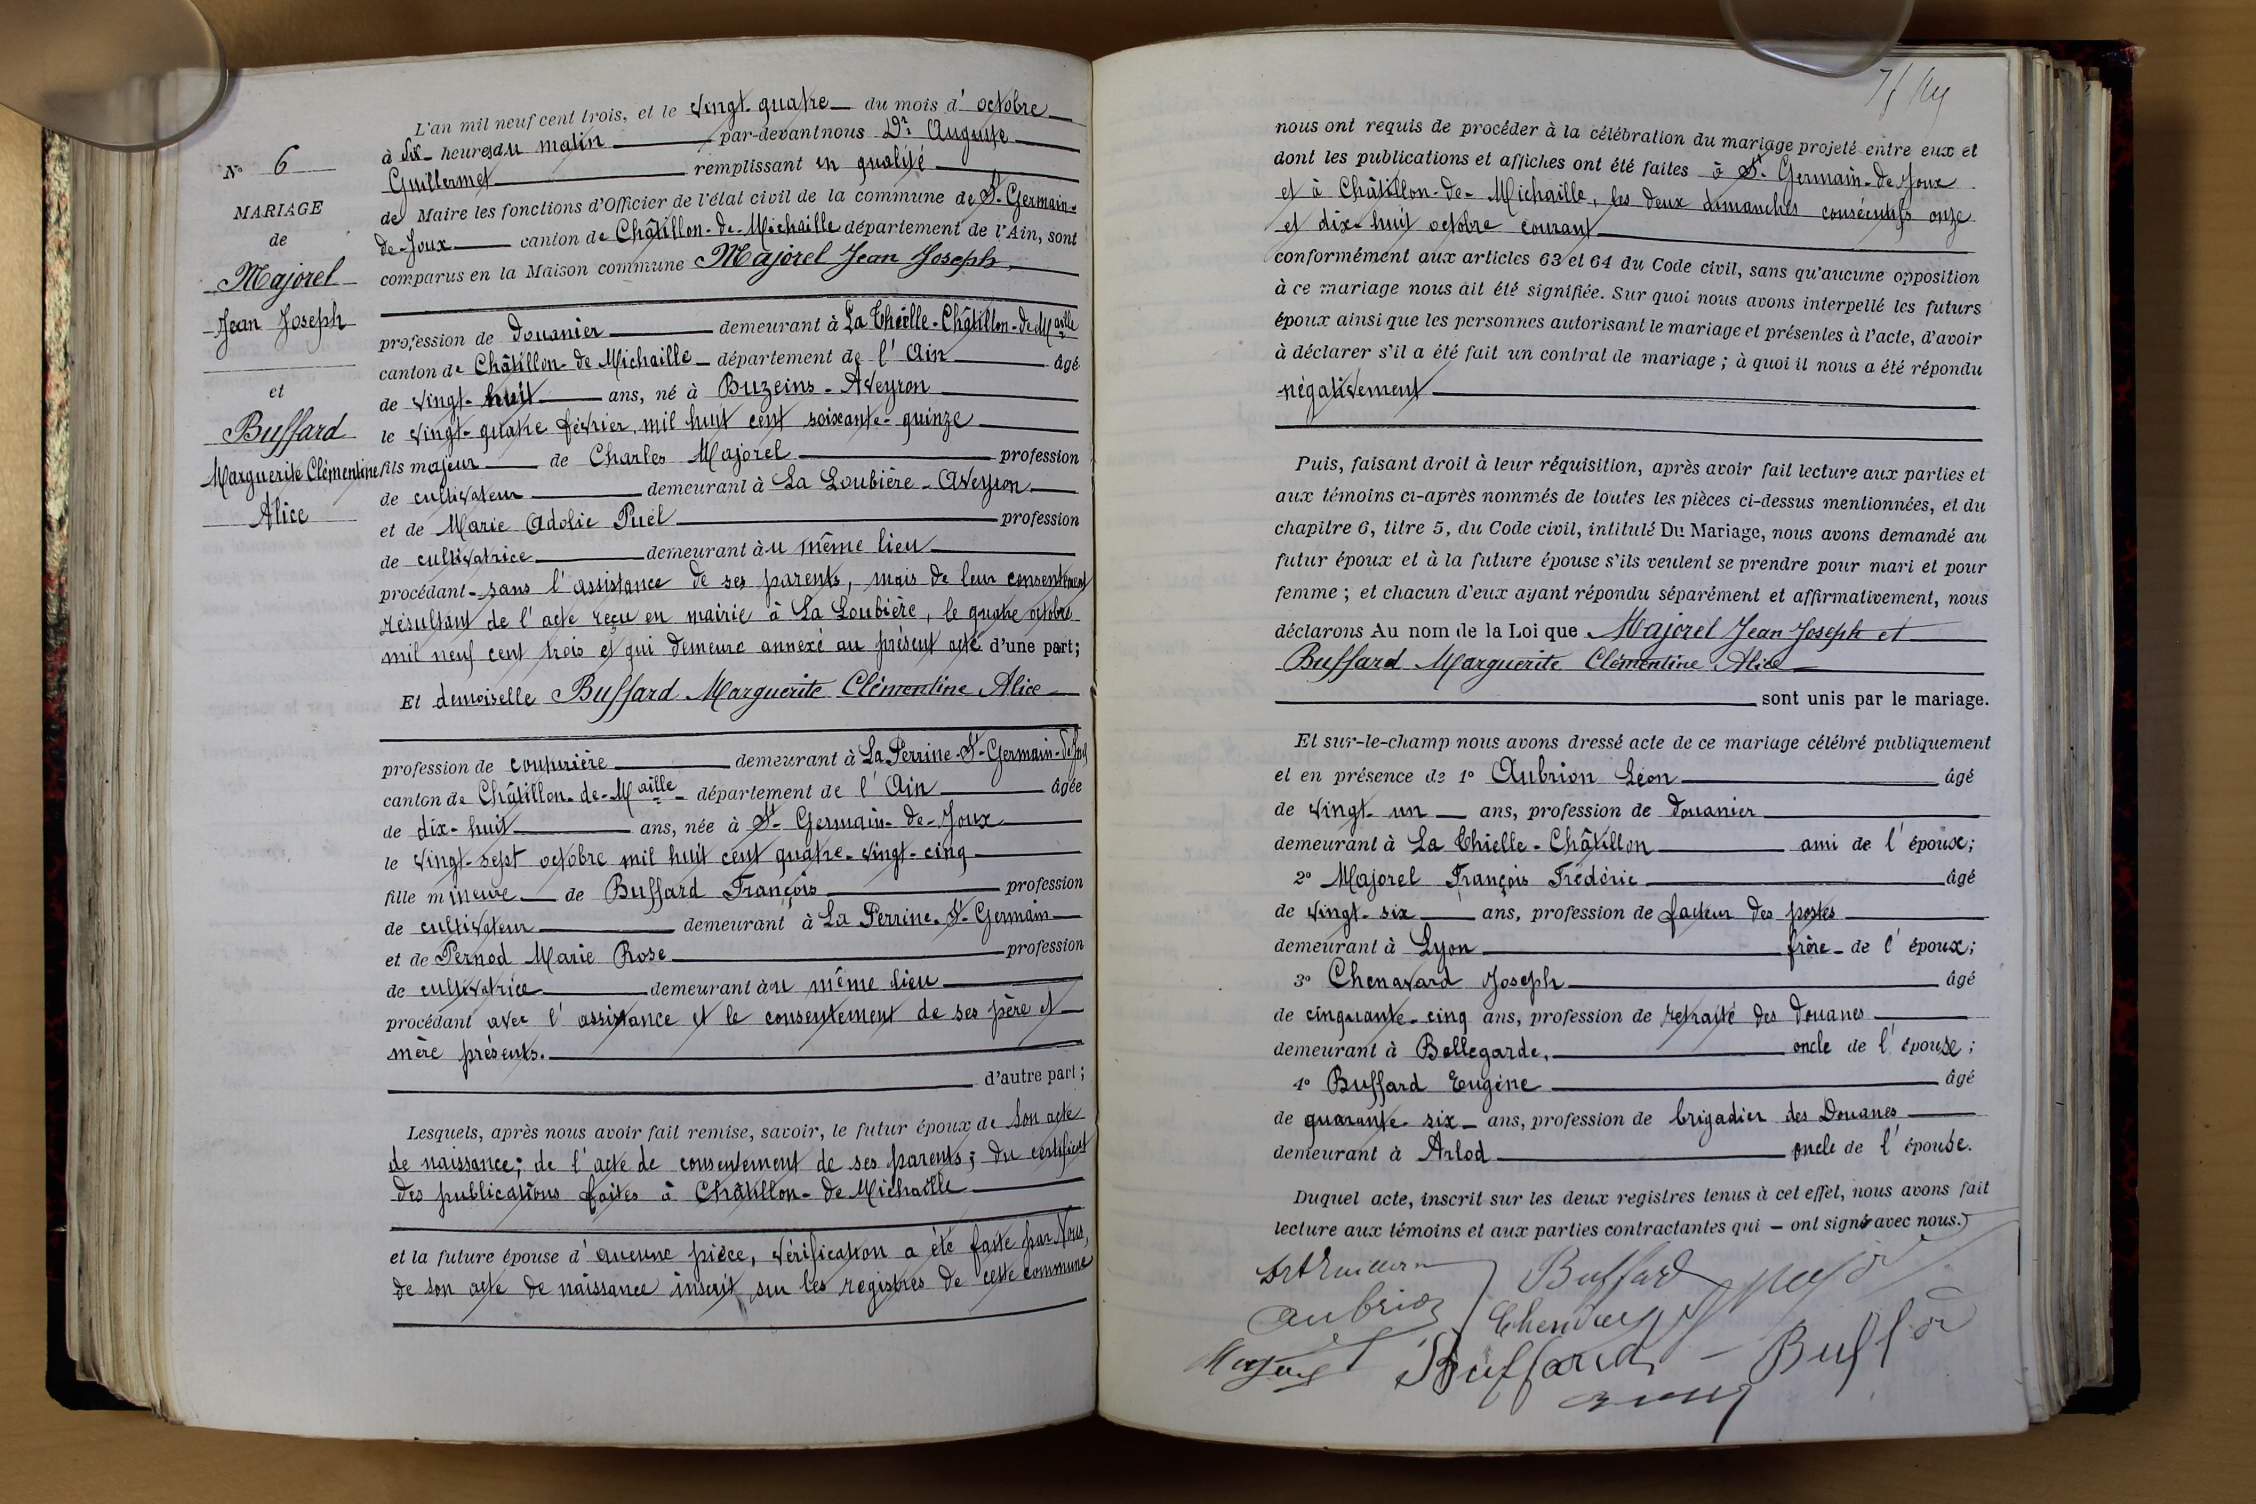 N° 6
MARIAGE
de
Majorel
Jean Joseph
et
Buffard
Marguerite Clémentine
Alice
L'an mil neuf cent trois, et le vingt-quatre du mois d'octobre
à dix heures du matin par-devant nous Dr Auguste
Guillermet remplissant en qualité
de Maire les fonctions d'Officier de l'état civil de la commune de St-Germain-
de-Joux canton de Châtillon-de-Michaille département de l'Ain, sont
comparus en la Maison commune Majorel Jean Joseph,
profession de douanier demeurant à La Thielle-Châtillon-de-Maille
canton de Châtillon-de Michaille département de l'Ain âgé
de vingt-huit ans, né à Buzeins-Aveyron
le vingt-quatre février mil huit cent soixante-quinze
fils majeur de Charles Majorel profession
de cultivateur demeurant à La Loubière-Aveyron
et de Marie Adolie Puel profession
de cultivatrice demeurant àu même lieu
procédant sans l'assistance de ses parents, mais de leur consentement
résultant de l'acte reçu en mairie à La Loubière, le quatre octobre
mil neuf cent trois et qui demeure annexé au présent acte d'une part;
Et demoiselle Buffard Marguerite Clémentine Alice
profession de couturière demeurant à La Perrine-St-Germain-de-Joux
canton de Châtillon-de-Maille département de l'Ain âgée
de dix-huit ans, née à St-Germain-de-Joux
le vingt-sept octobre mil huit cent quatre-vingt-cinq
fille mineure de Buffard François profession
de cultivateur demeurant à La Perrine-St-Germain
et de Pernod Marie Rose profession
de cultivatrice demeurant àu même lieu
procédant avec l'assistance et le consentement de ses père et
mère présents.
d'autre part;
Lesquels, après nous avoir fait remise, savoir, le futur époux de son acte
de naissance; de l'acte de consentement de ses parents; du certificat
des publications faites à Châtillon-de Michaille
et la future épouse d'aucune pièce, vérification a été faite par Nous,
de son acte de naissance inscrit sur les registres de cette commune
nous ont requis de procéder à la célébration du mariage projeté entre eux et
dont les publications et affiches ont été faites à St-Germain-de Joux
et à Châtillon-de-Michaille, les deux dimanches consécutifs onze
et dix-huit octobre courant
conformément aux articles 63 et 64 du Code civil, sans qu'aucune opposition
à ce mariage nous ait été signifiée. Sur quoi nous avons interpellé les futurs
époux ainsi que les personnes autorisant le mariage et présentes à l'acte, d'avoir
à déclarer s'il a été fait un contrat de mariage; à quoi il nous a été répondu
négativement
Puis, faisant droit à leur réquisition, après avoir fait lecture aux parties et
aux témoins ci-après nommés de toutes les pièces ci-dessus mentionnées, et du
chapitre 6, titre 5, du Code civil, intitulé Du Mariage, nous avons demandé au
futur époux et à la future épouse s'ils veulent se prendre pour mari et pour
femme; et chacun d'eux ayant répondu séparément et affirmativement, nous
déclarons Au nom de la Loi que Majorel Jean Joseph et
Buffard Marguerite Clémentine Alice
sont unis par le mariage.
Et sur-le-champ nous avons dressé acte de ce mariage célébré publiquement
et en présence de 1° Aubrion Léon âgé
de vingt-un ans, profession de douanier
demeurant à La Thielle-Châtillon ami de l'époux;
2° Majorel François Frédéric âgé
de vingt-six ans, profession de facteur des postes
demeurant à Lyon frère de l'époux;
3° Chenavard Joseph âgé
de cinquante-cinq ans, profession de retraité des douanes
demeurant à Bellegarde, oncle de l'épouse;
4° Buffard Eugène âgé
de quarante-six ans, profession de brigadier des Douanes
demeurant à Arlod oncle de l'épouse.
Duquel acte, inscrit sur les deux registres tenus à cet effet, nous avons fait
lecture aux témoins et aux parties contractantes qui ont signé avec nous.
Buffard
Aubrion
Buffard